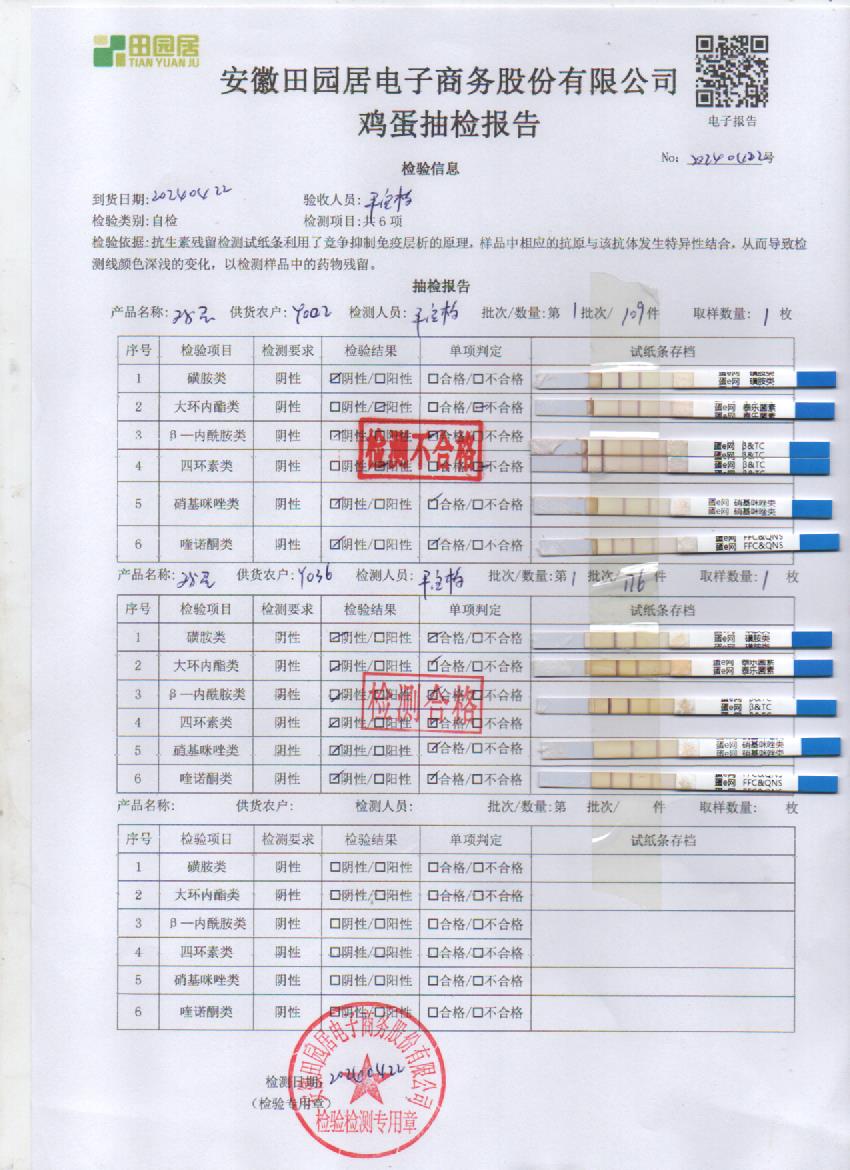 田园居
TIAN YUAN JU
安徽田园居电子商务股份有限公司
鸡蛋抽检报告
电子报告
No: 20240422号
检验信息
到货日期:20240422 验收人员:
检验类别:自检 检测项目:共6项
检验依据:抗生素残留检测试纸条利用了竞争抑制免疫层析的原理，样品中相应的抗原与该抗体发生特异性结合，从而导致检
测线颜色深浅的变化，以检测样品中的药物残留。
抽检报告
产品名称: 供货农户:Y022 检测人员: 批次/数量:第1批次/109件 取样数量:1枚
序号 检验项目 检测要求 检验结果 单项判定 试纸条存档
1 磺胺类 阴性 ☑阴性/□阳性 □合格/□不合格 蛋e网 磺胺类
蛋e网 磺胺类
2 大环内酯类 阴性 □阴性/☑阳性 □合格/☑不合格 蛋e网 泰乐菌素
蛋e网 泰乐菌素
3 β—内酰胺类 阴性 ☑阴性/□阳性 ☑合格/□不合格 蛋e网 β&TC
蛋e网 β&TC
4 四环素类 阴性 □阴性/☑阳性 □合格/☑不合格 蛋e网 β&TC
蛋e网 β&TC
检测不合格
5 硝基咪唑类 阴性 ☑阴性/□阳性 ☑合格/□不合格 蛋e网 硝基咪唑类
蛋e网 硝基咪唑类
6 喹诺酮类 阴性 ☑阴性/□阳性 ☑合格/□不合格 蛋e网 FFC&QNS
蛋e网 FFC&QNS
产品名称: 供货农户:Y036 检测人员: 批次/数量:第1批次/116件 取样数量:1枚
序号 检验项目 检测要求 检验结果 单项判定 试纸条存档
1 磺胺类 阴性 ☑阴性/□阳性 ☑合格/□不合格 蛋e网 磺胺类
蛋e网 磺胺类
2 大环内酯类 阴性 ☑阴性/□阳性 ☑合格/□不合格 蛋e网 泰乐菌素
蛋e网 泰乐菌素
3 β—内酰胺类 阴性 ☑阴性/□阳性 ☑合格/□不合格 蛋e网 β&TC
蛋e网 β&TC
检测合格
4 四环素类 阴性 ☑阴性/□阳性 ☑合格/□不合格
5 硝基咪唑类 阴性 ☑阴性/□阳性 ☑合格/□不合格 蛋e网 硝基咪唑类
蛋e网 硝基咪唑类
6 喹诺酮类 阴性 ☑阴性/□阳性 ☑合格/□不合格 蛋e网 FFC&QNS
蛋e网 FFC&QNS
产品名称: 供货农户: 检测人员: 批次/数量:第 批次/ 件 取样数量: 枚
序号 检验项目 检测要求 检验结果 单项判定 试纸条存档
1 磺胺类 阴性 □阴性/□阳性 □合格/□不合格
2 大环内酯类 阴性 □阴性/□阳性 □合格/□不合格
3 β—内酰胺类 阴性 □阴性/□阳性 □合格/□不合格
4 四环素类 阴性 □阴性/□阳性 □合格/□不合格
5 硝基咪唑类 阴性 □阴性/□阳性 □合格/□不合格
6 喹诺酮类 阴性 □阴性/□阳性 □合格/□不合格
安徽田园居电子商务股份有限公司
检测日期:20240422
(检验专用章)
检验检测专用章